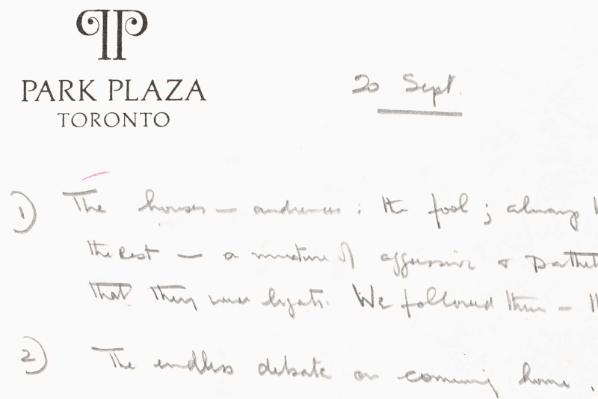 PARK PLAZA
TORONTO
20 Sept.
1) The houses — audiences : the fool ; always
the rest — a mixture of aggressive &
that they were bigots. We followed them —
2) The endless debate on coming home.